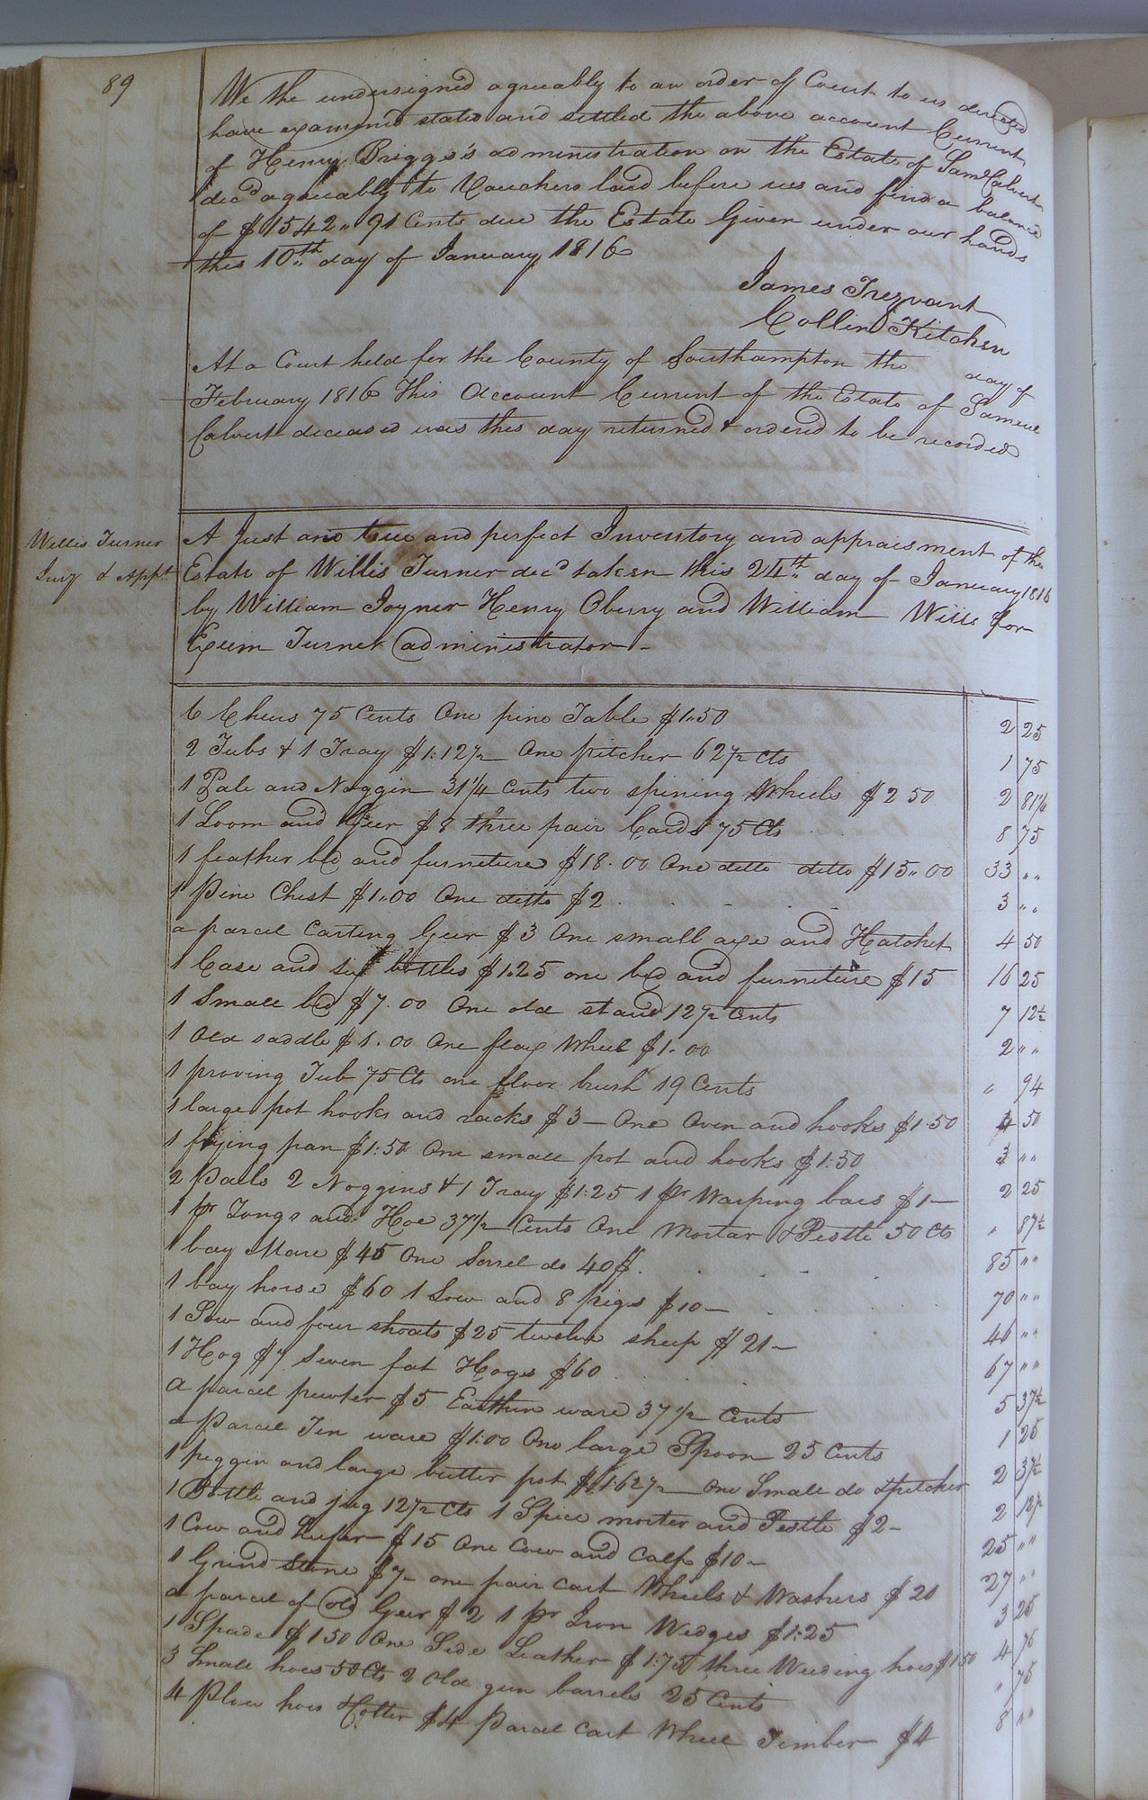 89
We the undersigned agreeably to an order of Court to us directed
have examined stated and settled the above account Current
of Henry Briggs's administration on the Estate of Saml Calvert
decd agreeably to Vouchers laid before us and find a balance
of $1542"91 Cents due the Estate Given under our hands
this 10th day of January 1816
James Trezvant
Collin Kitchen
At a Court held for the County of Southampton the day of
February 1816 This Account Current of the Estate of Samuel
Calvert deceased was this day returned & ordered to be recorded
Willis Turner
Invy & Appt
A Just and true and perfect Inventory and appraisment of the
Estate of Willis Turner decd taken this 24th day of January 1816
by William Joyner Henry Oberry and William Wills for
Exum Turner administrator
6 Chers 75 Cents One pine Table $1.50 2 25
2 Tubs & 1 Tray $1.12½ One pitcher 62½ cts 1 75
1 Pale and Noggin 31¼ Cents two spining Wheels $2 50 2 81¼
1 Loom and Geer $8 three pair Cards 75 Cts 8 75
1 feather bed and furneture $18.00 One ditto ditto $15"00 33 " "
1 Pine Chest $1"00 One ditto $2 3 " "
a parcel Carting Geer $3 One small axe and Hatchet 4 50
1 Case and six bottles $1.25 one bed and furneture $15 16 25
1 Small bed $7.00 One old stand 12½ Cents 7 12½
1 Old saddle $1.00 One flax Wheel $1.00 2 " "
1 proving Tub 75 Cts one floor brush 19 Cents " 94
1 large pot hooks and racks $3 - One Oven and hooks $1.50 4 50
1 frying pan $1.50 One small pot and hooks $1.50 3 " "
2 Pails 2 Noggins & 1 Tray $1.25 1 pr Warping bars $1 - 2 25
1 pr Tongs and Hoe 37½ Cents One Mortar & Pestle 50 Cts " 87½
1 bay Mare $45 One Sorrel do 40$ 85 " "
1 bay horse $60 1 Sow and 8 pigs $10 - 70 " "
1 Sow and four shoats $25 twelve sheep $21 - 46 " "
1 Hog $7 Seven fat Hogs $60 67 " "
A parcel pewter $5 Earthen ware 37½ Cents 5 37½
a Parcel Tin ware $1.00 One large Spoon 25 Cents 1 25
1 peggin and large butter pot $1.62½ One Small do & pitcher 2 37½
1 Bottle and jug 12½ Cts 1 Spice morter and Pestle $2 - 2 12½
1 Cow and heifer $15 One Cow and Calf $10 - 25 " "
1 Grind stone $7 - one pair Cart Wheels & Washers $20 27 " "
a parcel of old Geer $2 1 pr Iron Wedges $1.25 3 25
1 Spade $1 50 One Side Leather $1.75 three Weeding hoes $1 50 4 75
3 Small hoes 50 Cts 2 Old gun barrels 25 Cents " 75
4 Plow hoes $4 Parcel Cart Wheel Timber $4 8 " "